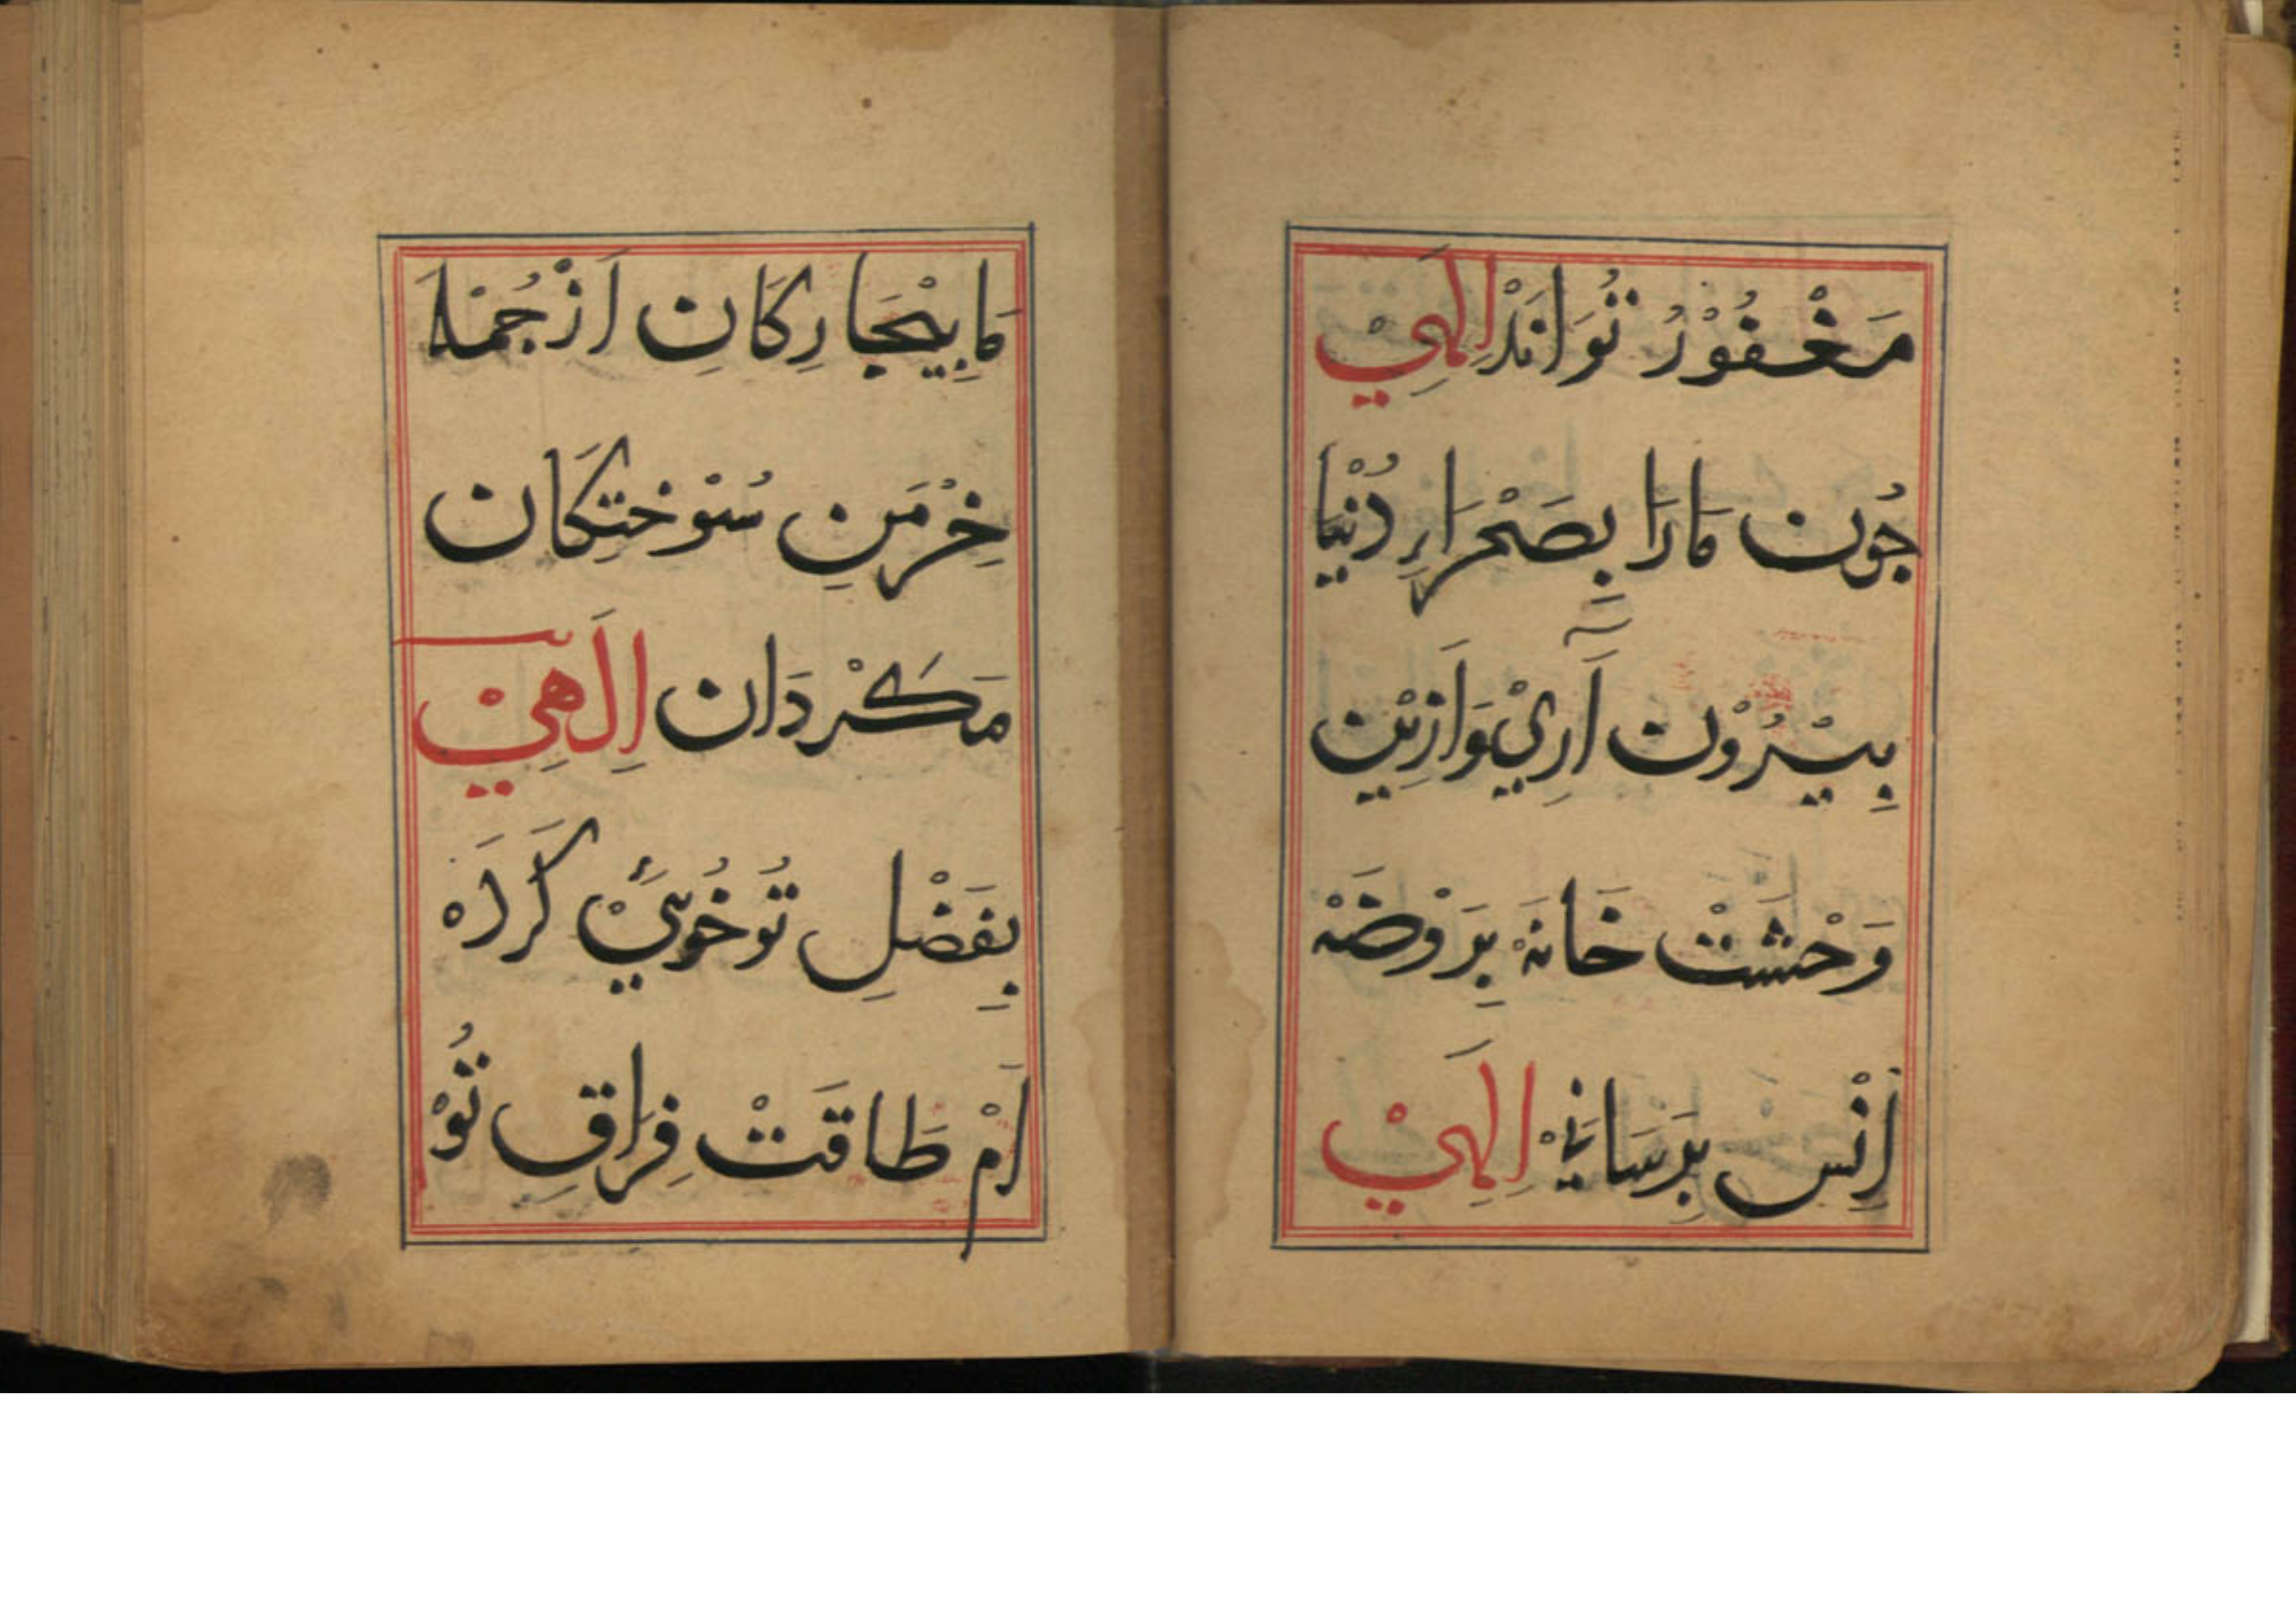 مَغْفُوْرُ تُوَانَدْ اِلٰهِيْ
جُون مَارَا بِصَحْرَاىِ دُنْيَا
بِيْرُوْن آرِيْ وَازِيْن
وَحْشَتْ خَانَهْ بِرَوْضَهْ
اِنْس بِرَسَانِيْ اِلٰهِيْ
مَا بِيْجَارِكَانِ اَزْ جُمْلَهٔ
خِرْمَنِ سُوْخْتِكَان
مَكَرْدَان اِلٰهِيْ
بِفَضْلِ تُو خُويِيْ كَرْدَه
اَمْ طَاقَتْ فِرَاقِ تُوْ